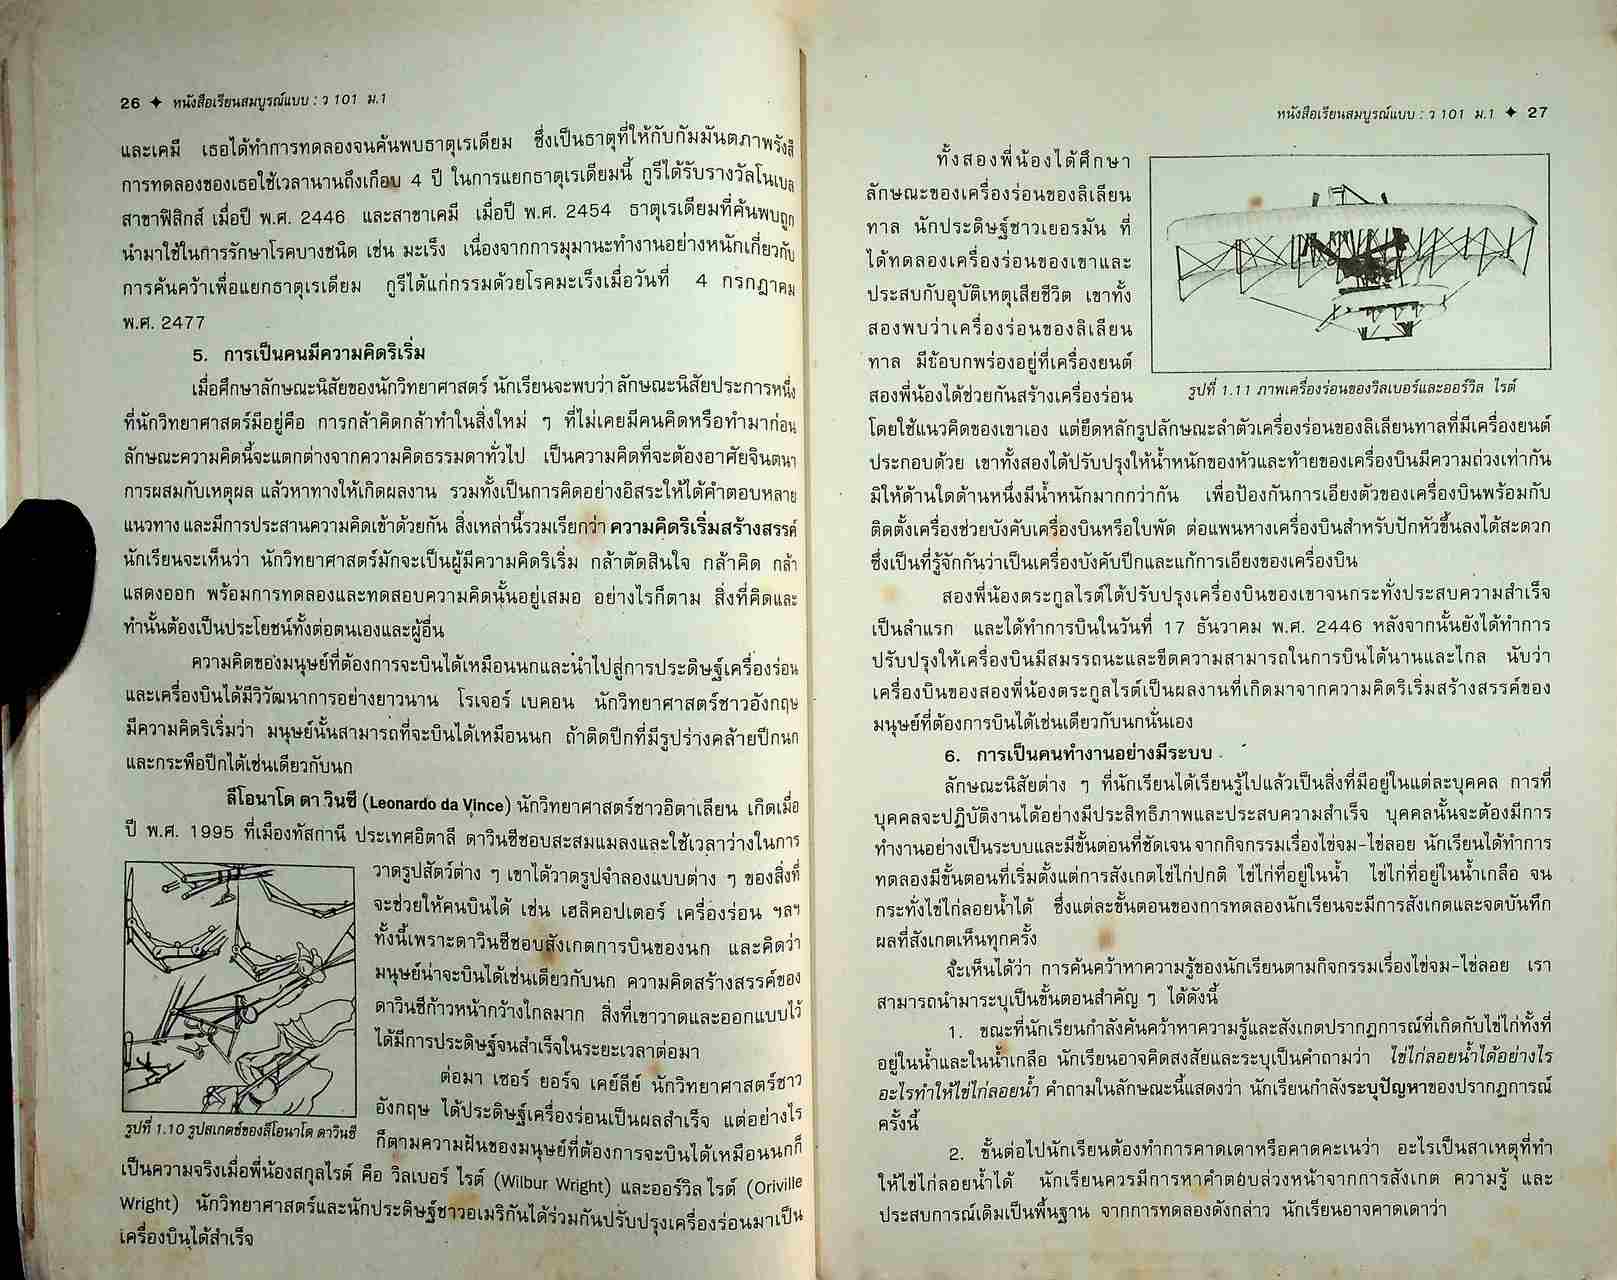 26 ✦ หนังสือเรียนสมบูรณ์แบบ : ว 101 ม.1
และเคมี เธอได้ทำการทดลองจนค้นพบธาตุเรเดียม ซึ่งเป็นธาตุที่ให้กับกัมมันตภาพรังสี
การทดลองของเธอใช้เวลานานถึงเกือบ 4 ปี ในการแยกธาตุเรเดียมนี้ กูรีได้รับรางวัลโนเบล
สาขาฟิสิกส์ เมื่อปี พ.ศ. 2446 และสาขาเคมี เมื่อปี พ.ศ. 2454 ธาตุเรเดียมที่ค้นพบถูก
นำมาใช้ในการรักษาโรคบางชนิด เช่น มะเร็ง เนื่องจากการมุมานะทำงานอย่างหนักเกี่ยวกับ
การค้นคว้าเพื่อแยกธาตุเรเดียม กูรีได้แก่กรรมด้วยโรคมะเร็งเมื่อวันที่ 4 กรกฎาคม
พ.ศ. 2477
5. การเป็นคนมีความคิดริเริ่ม
เมื่อศึกษาลักษณะนิสัยของนักวิทยาศาสตร์ นักเรียนจะพบว่า ลักษณะนิสัยประการหนึ่ง
ที่นักวิทยาศาสตร์มีอยู่คือ การกล้าคิดกล้าทำในสิ่งใหม่ ๆ ที่ไม่เคยมีคนคิดหรือทำมาก่อน
ลักษณะความคิดนี้จะแตกต่างจากความคิดธรรมดาทั่วไป เป็นความคิดที่จะต้องอาศัยจินตนา
การผสมกับเหตุผล แล้วหาทางให้เกิดผลงาน รวมทั้งเป็นการคิดอย่างอิสระให้ได้คำตอบหลาย
แนวทาง และมีการประสานความคิดเข้าด้วยกัน สิ่งเหล่านี้รวมเรียกว่า ความคิดริเริ่มสร้างสรรค์
นักเรียนจะเห็นว่า นักวิทยาศาสตร์มักจะเป็นผู้มีความคิดริเริ่ม กล้าตัดสินใจ กล้าคิด กล้า
แสดงออก พร้อมการทดลองและทดสอบความคิดนั้นอยู่เสมอ อย่างไรก็ตาม สิ่งที่คิดและ
ทำนั้นต้องเป็นประโยชน์ทั้งต่อตนเองและผู้อื่น
ความคิดของมนุษย์ที่ต้องการจะบินได้เหมือนนกและนำไปสู่การประดิษฐ์เครื่องร่อน
และเครื่องบินได้มีวิวัฒนาการอย่างยาวนาน โรเจอร์ เบคอน นักวิทยาศาสตร์ชาวอังกฤษ
มีความคิดริเริ่มว่า มนุษย์นั้นสามารถที่จะบินได้เหมือนนก ถ้าติดปีกที่มีรูปร่างคล้ายปีกนก
และกระพือปีกได้เช่นเดียวกับนก
ลีโอนาโด ดา วินชี (Leonardo da Vince) นักวิทยาศาสตร์ชาวอิตาเลียน เกิดเมื่อ
ปี พ.ศ. 1995 ที่เมืองทัสกานี ประเทศอิตาลี ดาวินชีชอบสะสมแมลงและใช้เวลาว่างในการ
วาดรูปสัตว์ต่าง ๆ เขาได้วาดรูปจำลองแบบต่าง ๆ ของสิ่งที่
จะช่วยให้คนบินได้ เช่น เฮลิคอปเตอร์ เครื่องร่อน ฯลฯ
ทั้งนี้เพราะดาวินชีชอบสังเกตการบินของนก และคิดว่า
มนุษย์น่าจะบินได้เช่นเดียวกับนก ความคิดสร้างสรรค์ของ
ดาวินชีก้าวหน้ากว้างไกลมาก สิ่งที่เขาวาดและออกแบบไว้
ได้มีการประดิษฐ์จนสำเร็จในระยะเวลาต่อมา
ต่อมา เซอร์ ยอร์จ เคย์ลีย์ นักวิทยาศาสตร์ชาว
อังกฤษ ได้ประดิษฐ์เครื่องร่อนเป็นผลสำเร็จ แต่อย่างไร
ก็ตามความฝันของมนุษย์ที่ต้องการจะบินได้เหมือนนกก็
รูปที่ 1.10 รูปสเกตช์ของลีโอนาโด ดาวินชี
เป็นความจริงเมื่อพี่น้องสกุลไรต์ คือ วิลเบอร์ ไรต์ (Wilbur Wright) และออร์วิล ไรต์ (Oriville
Wright) นักวิทยาศาสตร์และนักประดิษฐ์ชาวอเมริกันได้ร่วมกันปรับปรุงเครื่องร่อนมาเป็น
เครื่องบินได้สำเร็จ
หนังสือเรียนสมบูรณ์แบบ : ว 101 ม.1 ✦ 27
ทั้งสองพี่น้องได้ศึกษา
ลักษณะของเครื่องร่อนของลิเลียน
ทาล นักประดิษฐ์ชาวเยอรมัน ที่
ได้ทดลองเครื่องร่อนของเขาและ
ประสบกับอุบัติเหตุเสียชีวิต เขาทั้ง
สองพบว่าเครื่องร่อนของลิเลียน
ทาล มีข้อบกพร่องอยู่ที่เครื่องยนต์
สองพี่น้องได้ช่วยกันสร้างเครื่องร่อน
รูปที่ 1.11 ภาพเครื่องร่อนของวิลเบอร์และออร์วิล ไรต์
โดยใช้แนวคิดของเขาเอง แต่ยึดหลักรูปลักษณะลำตัวเครื่องร่อนของลิเลียนทาลที่มีเครื่องยนต์
ประกอบด้วย เขาทั้งสองได้ปรับปรุงให้น้ำหนักของหัวและท้ายของเครื่องบินมีความถ่วงเท่ากัน
มิให้ด้านใดด้านหนึ่งมีน้ำหนักมากกว่ากัน เพื่อป้องกันการเอียงตัวของเครื่องบินพร้อมกับ
ติดตั้งเครื่องช่วยบังคับเครื่องบินหรือใบพัด ต่อแพนหางเครื่องบินสำหรับปักหัวขึ้นลงได้สะดวก
ซึ่งเป็นที่รู้จักกันว่าเป็นเครื่องบังคับปีกและแก้การเอียงของเครื่องบิน
สองพี่น้องตระกูลไรต์ได้ปรับปรุงเครื่องบินของเขาจนกระทั่งประสบความสำเร็จ
เป็นลำแรก และได้ทำการบินในวันที่ 17 ธันวาคม พ.ศ. 2446 หลังจากนั้นยังได้ทำการ
ปรับปรุงให้เครื่องบินมีสมรรถนะและขีดความสามารถในการบินได้นานและไกล นับว่า
เครื่องบินของสองพี่น้องตระกูลไรต์เป็นผลงานที่เกิดมาจากความคิดริเริ่มสร้างสรรค์ของ
มนุษย์ที่ต้องการบินได้เช่นเดียวกับนกนั่นเอง
6. การเป็นคนทำงานอย่างมีระบบ
ลักษณะนิสัยต่าง ๆ ที่นักเรียนได้เรียนรู้ไปแล้วเป็นสิ่งที่มีอยู่ในแต่ละบุคคล การที่
บุคคลจะปฏิบัติงานได้อย่างมีประสิทธิภาพและประสบความสำเร็จ บุคคลนั้นจะต้องมีการ
ทำงานอย่างเป็นระบบและมีขั้นตอนที่ชัดเจน จากกิจกรรมเรื่องไข่จม-ไข่ลอย นักเรียนได้ทำการ
ทดลองมีขั้นตอนที่เริ่มตั้งแต่การสังเกตไข่ไก่ปกติ ไข่ไก่ที่อยู่ในน้ำ ไข่ไก่ที่อยู่ในน้ำเกลือ จน
กระทั่งไข่ไก่ลอยน้ำได้ ซึ่งแต่ละขั้นตอนของการทดลองนักเรียนจะมีการสังเกตและจดบันทึก
ผลที่สังเกตเห็นทุกครั้ง
จะเห็นได้ว่า การค้นคว้าหาความรู้ของนักเรียนตามกิจกรรมเรื่องไข่จม-ไข่ลอย เรา
สามารถนำมาระบุเป็นขั้นตอนสำคัญ ๆ ได้ดังนี้
1. ขณะที่นักเรียนกำลังค้นคว้าหาความรู้และสังเกตปรากฏการณ์ที่เกิดกับไข่ไก่ทั้งที่
อยู่ในน้ำและในน้ำเกลือ นักเรียนอาจคิดสงสัยและระบุเป็นคำถามว่า ไข่ไก่ลอยน้ำได้อย่างไร
อะไรทำให้ไข่ไก่ลอยน้ำ คำถามในลักษณะนี้แสดงว่า นักเรียนกำลังระบุปัญหาของปรากฏการณ์
ครั้งนี้
2. ขั้นต่อไปนักเรียนต้องทำการคาดเดาหรือคาดคะเนว่า อะไรเป็นสาเหตุที่ทำ
ให้ไข่ไก่ลอยน้ำได้ นักเรียนควรมีการหาคำตอบล่วงหน้าจากการสังเกต ความรู้ และ
ประสบการณ์เดิมเป็นพื้นฐาน จากการทดลองดังกล่าว นักเรียนอาจคาดเดาว่า